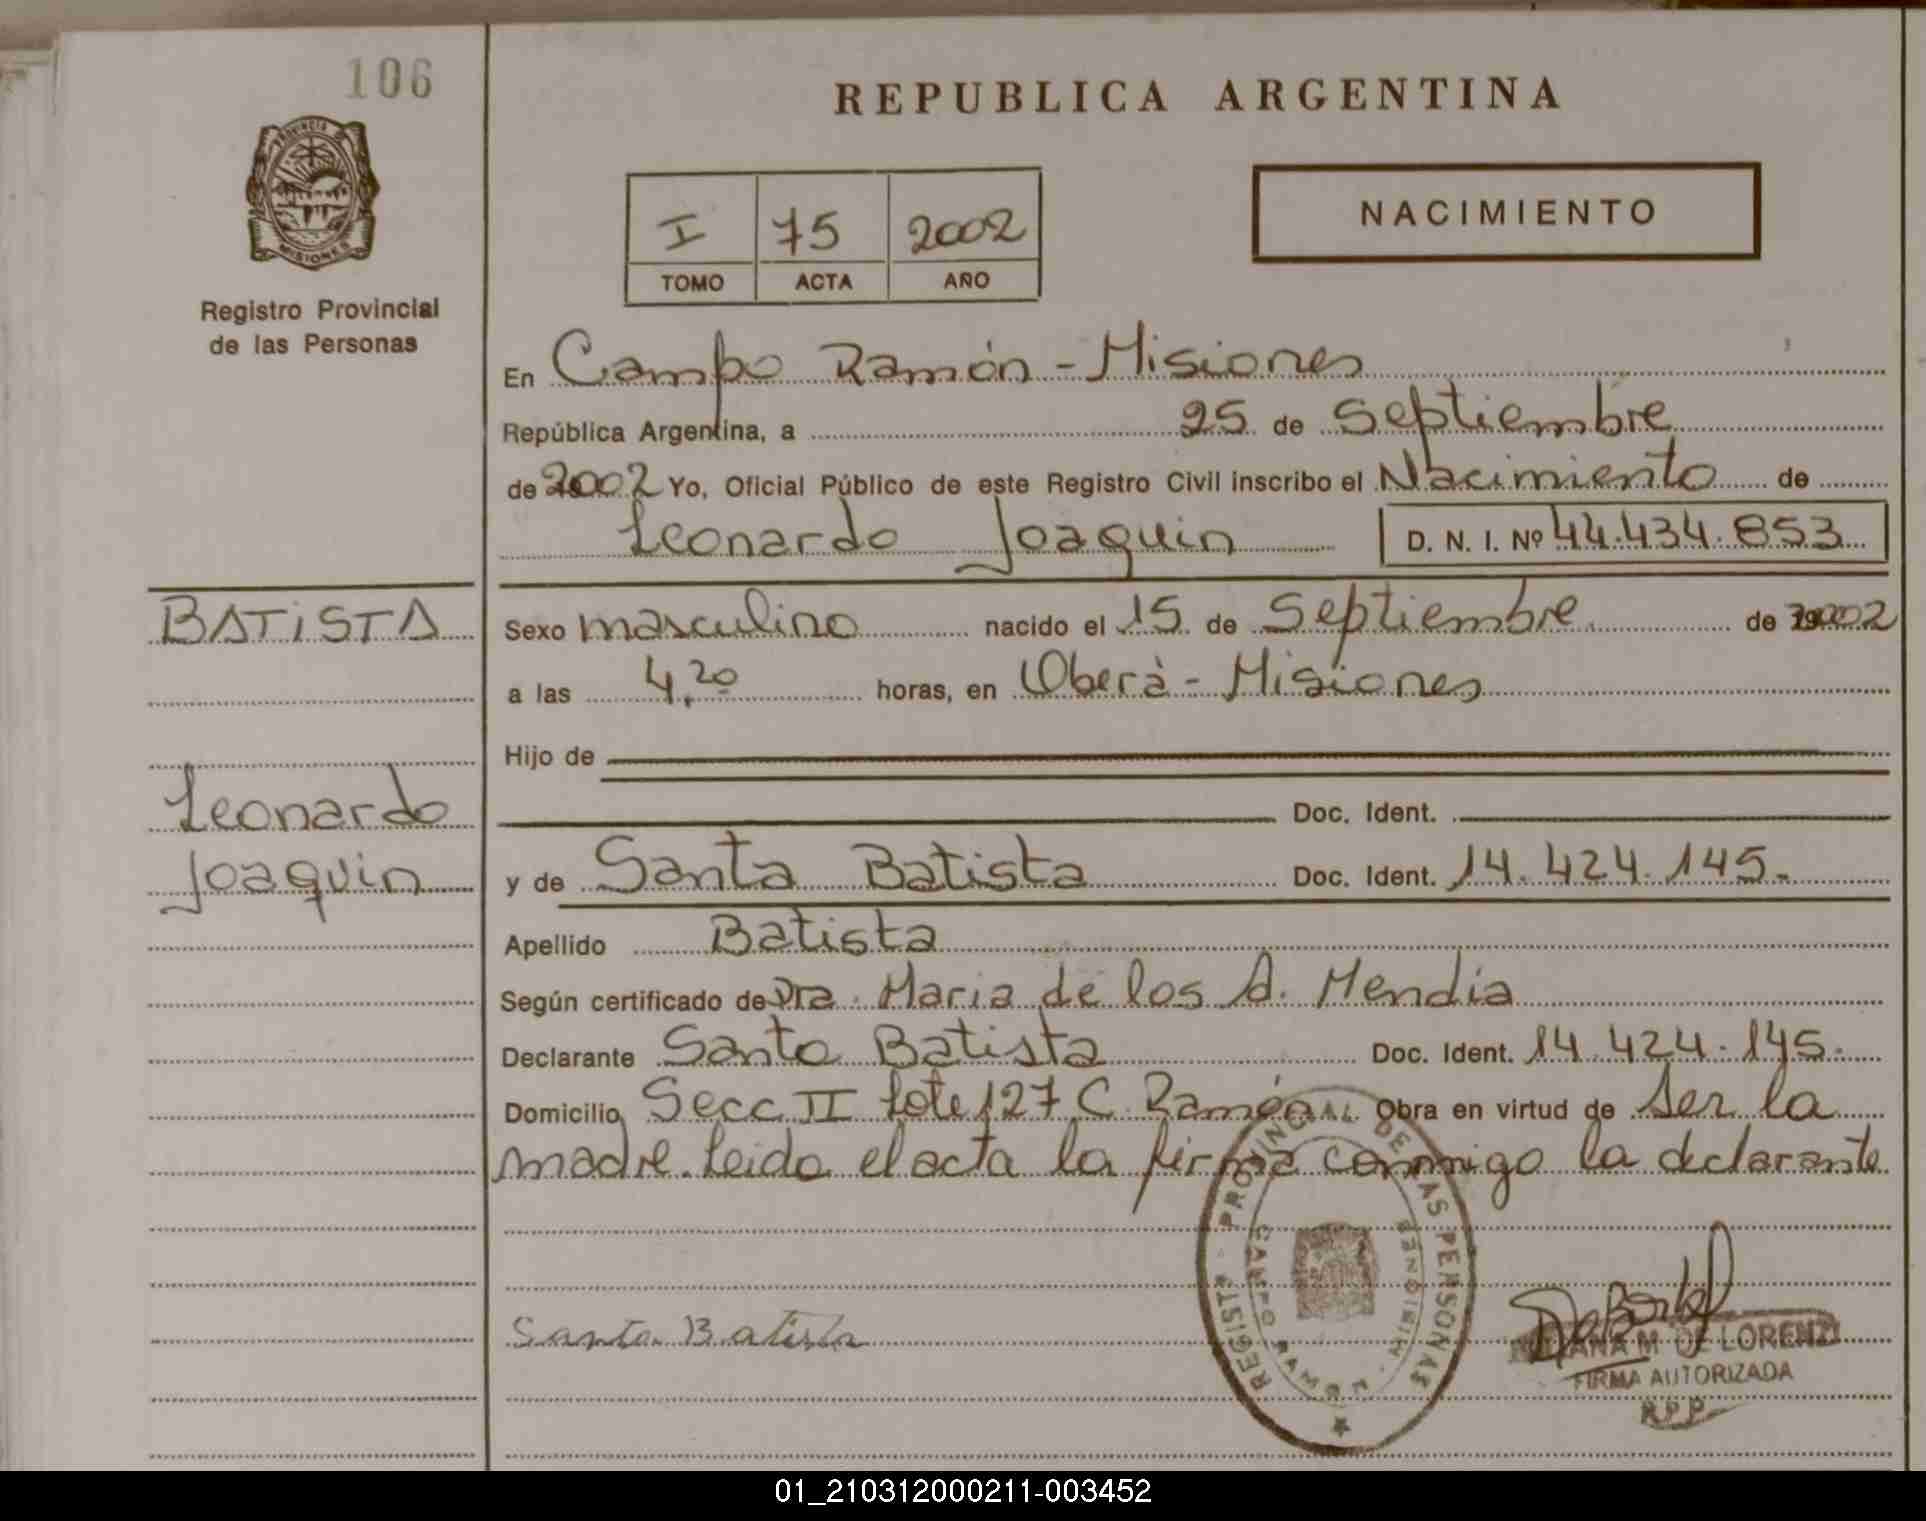 106
REPUBLICA ARGENTINA
PROVINCIA DE
MISIONES
Registro Provincial
de las Personas
I 75 2002
TOMO ACTA AÑO
NACIMIENTO
En Campo Ramón - Misiones
República Argentina, a 25 de Septiembre
de 2002 Yo, Oficial Público de este Registro Civil inscribo el Nacimiento de
Leonardo Joaquin D. N. I. Nº 44.434.853
BATISTA
Leonardo
Joaquin
Sexo masculino nacido el 15 de Septiembre de 2002
a las 4,20 horas, en Oberà - Misiones
Hijo de
Doc. Ident.
y de Santa Batista Doc. Ident. 14.424.145.
Apellido Batista
Según certificado de Dra. Maria de los A. Mendia
Declarante Santa Batista Doc. Ident. 14.424.145.
Domicilio Secc II Lote 127 C. Ramón Obra en virtud de ser la
madre. Leida el acta la firma conmigo la declarante
Santa Batista
REGISTRO PROVINCIAL DE LAS PERSONAS
CAMPO RAMON - MISIONES
ANA M. DE LORENZI
FIRMA AUTORIZADA
R.P.P.
01_210312000211-003452